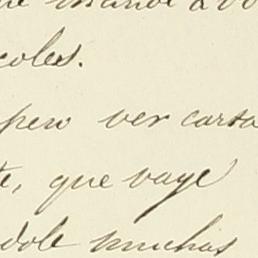 coles.
pero ver carta
te, que vaye
dole muchas